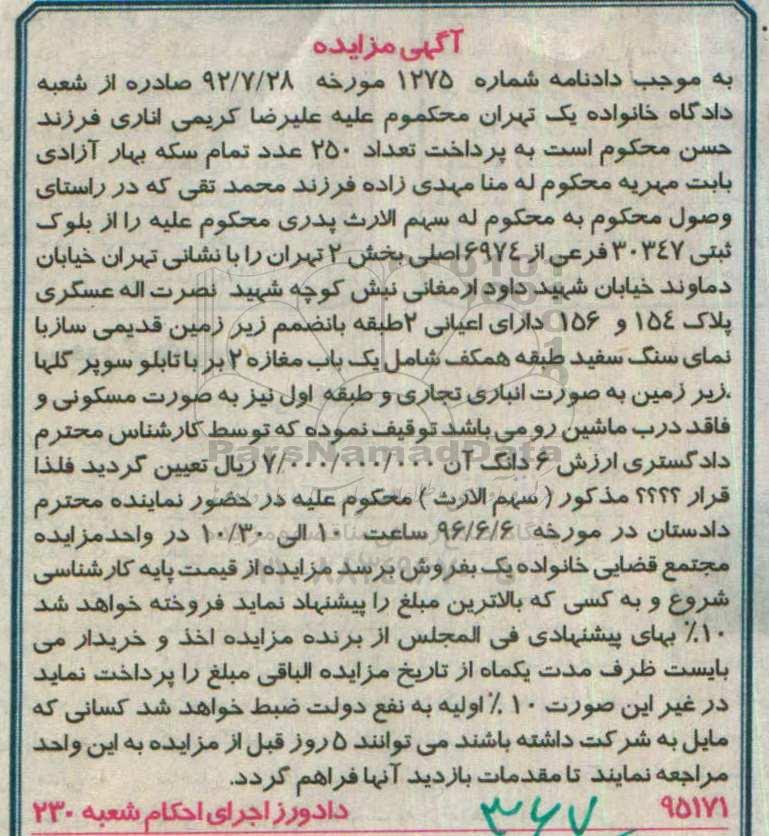 آگهی مزایده
به موجب دادنامه شماره ۱۲۷۵ مورخه ۹۲/۷/۲۸ صادره از شعبه
دادگاه خانواده یک تهران محکموم علیه علیرضا کریمی اناری فرزند
حسن محکوم است به پرداخت تعداد ۲۵۰ عدد تمام سکه بهار آزادی
بابت مهریه محکوم له منا مهدی زاده فرزند محمد تقی که در راستای
وصول محکوم به محکوم له سهم الارث پدری محکوم علیه را از بلوک
ثبتی ۳۰۳٤۷ فرعی از ۶۹۷٤ اصلی بخش ۲ تهران را با نشانی تهران خیابان
دماوند خیابان شهید داود ارمغانی نبش کوچه شهید نصرت اله عسگری
پلاک ۱۵٤ و ۱۵۶ دارای اعیانی ۲طبقه بانضمم زیر زمین قدیمی سازبا
نمای سنگ سفید طبقه همکف شامل یک باب مغازه ۲ بر با تابلو سوپر گلها
،زیر زمین به صورت انباری تجاری و طبقه اول نیز به صورت مسکونی و
فاقد درب ماشین رو می باشد توقیف نموده که توسط کارشناس محترم
ParsNamadData
دادگستری ارزش ۶ دانگ آن ۷/۰۰۰/۰۰۰/۰۰۰ ریال تعیین گردید فلذا
قرار ؟؟؟؟ مذکور ( سهم الارث ) محکوم علیه در حضور نماینده محترم
دادستان در مورخه ۹۶/۶/۶ ساعت ۱۰ الی ۱۰/۳۰ در واحدمزایده
مجتمع قضایی خانواده یک بفروش برسد مزایده از قیمت پایه کارشناسی
شروع و به کسی که بالاترین مبلغ را پیشنهاد نماید فروخته خواهد شد
۱۰٪ بهای پیشنهادی فی المجلس از برنده مزایده اخذ و خریدار می
بایست ظرف مدت یکماه از تاریخ مزایده الباقی مبلغ را پرداخت نماید
در غیر این صورت ۱۰ ٪ اولیه به نفع دولت ضبط خواهد شد کسانی که
مایل به شرکت داشته باشند می توانند ۵ روز قبل از مزایده به این واحد
مراجعه نمایند تا مقدمات بازدید آنها فراهم گردد.
۹۵۱۷۱ ۳۶۷ دادورز اجرای احکام شعبه ۲۳۰